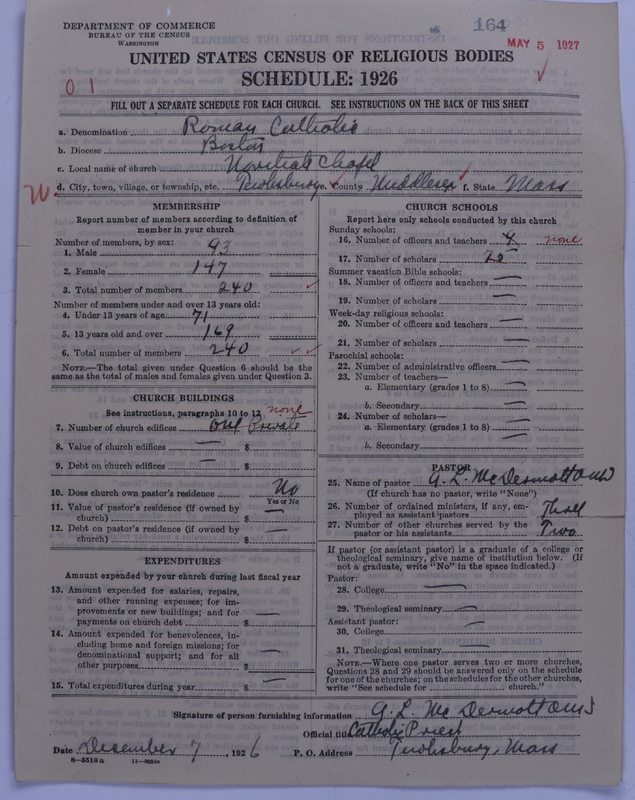 DEPARTMENT OF COMMERCE
BUREAU OF THE CENSUS
WASHINGTON
164
MAY 5 1927
UNITED STATES CENSUS OF RELIGIOUS BODIES
SCHEDULE: 1926
0 1
FILL OUT A SEPARATE SCHEDULE FOR EACH CHURCH. SEE INSTRUCTIONS ON THE BACK OF THIS SHEET
a. Denomination Roman Catholic
b. Diocese Boston
c. Local name of church Novitiate Chapel
W. d. City, town, village, or township, etc. Tewksbury e. County Middlesex f. State Mass
MEMBERSHIP
Report number of members according to definition of
member in your church
Number of members, by sex:
1. Male 93
2. Female 147
3. Total number of members 240
Number of members under and over 13 years old:
4. Under 13 years of age 71
5. 13 years old and over 169
6. Total number of members 240
NOTE.—The total given under Question 6 should be the
same as the total of males and females given under Question 3.
CHURCH BUILDINGS
See instructions, paragraphs 10 to 12 none
7. Number of church edifices one Private
8. Value of church edifices — $
9. Debt on church edifices — $
10. Does church own pastor's residence No
Yes or No
11. Value of pastor's residence (if owned by
church) $ —
12. Debt on pastor's residence (if owned by
church) $ —
EXPENDITURES
Amount expended by your church during last fiscal year
13. Amount expended for salaries, repairs,
and other running expenses; for im-
provements or new buildings; and for
payments on church debt $ —
14. Amount expended for benevolences, in-
cluding home and foreign missions; for
denominational support; and for all
other purposes $ —
15. Total expenditures during year $ —
CHURCH SCHOOLS
Report here only schools conducted by this church
Sunday schools:
16. Number of officers and teachers 4 none
17. Number of scholars
Summer vacation Bible schools:
18. Number of officers and teachers —
19. Number of scholars —
Week-day religious schools:
20. Number of officers and teachers —
21. Number of scholars —
Parochial schools:
22. Number of administrative officers —
23. Number of teachers—
a. Elementary (grades 1 to 8) —
b. Secondary —
24. Number of scholars—
a. Elementary (grades 1 to 8) —
b. Secondary
PASTOR
25. Name of pastor A. L. McDermott OMI
(If church has no pastor, write "None")
26. Number of ordained ministers, if any, em-
ployed as assistant pastors Three
27. Number of other churches served by the
pastor or his assistants Two
If pastor (or assistant pastor) is a graduate of a college or
theological seminary, give name of institution below. (If
not a graduate, write "No" in the space indicated.)
Pastor:
28. College —
29. Theological seminary —
Assistant pastor:
30. College —
31. Theological seminary —
NOTE.—Where one pastor serves two or more churches,
Questions 28 and 29 should be answered only on the schedule
for one of the churches; on the schedules for the other churches,
write "See schedule for church."
Signature of person furnishing information A. L. McDermott OMI
Official title Catholic Priest
Date December 7, 1926 P. O. Address Tewksbury, Mass
8-5518 a 11-9664a